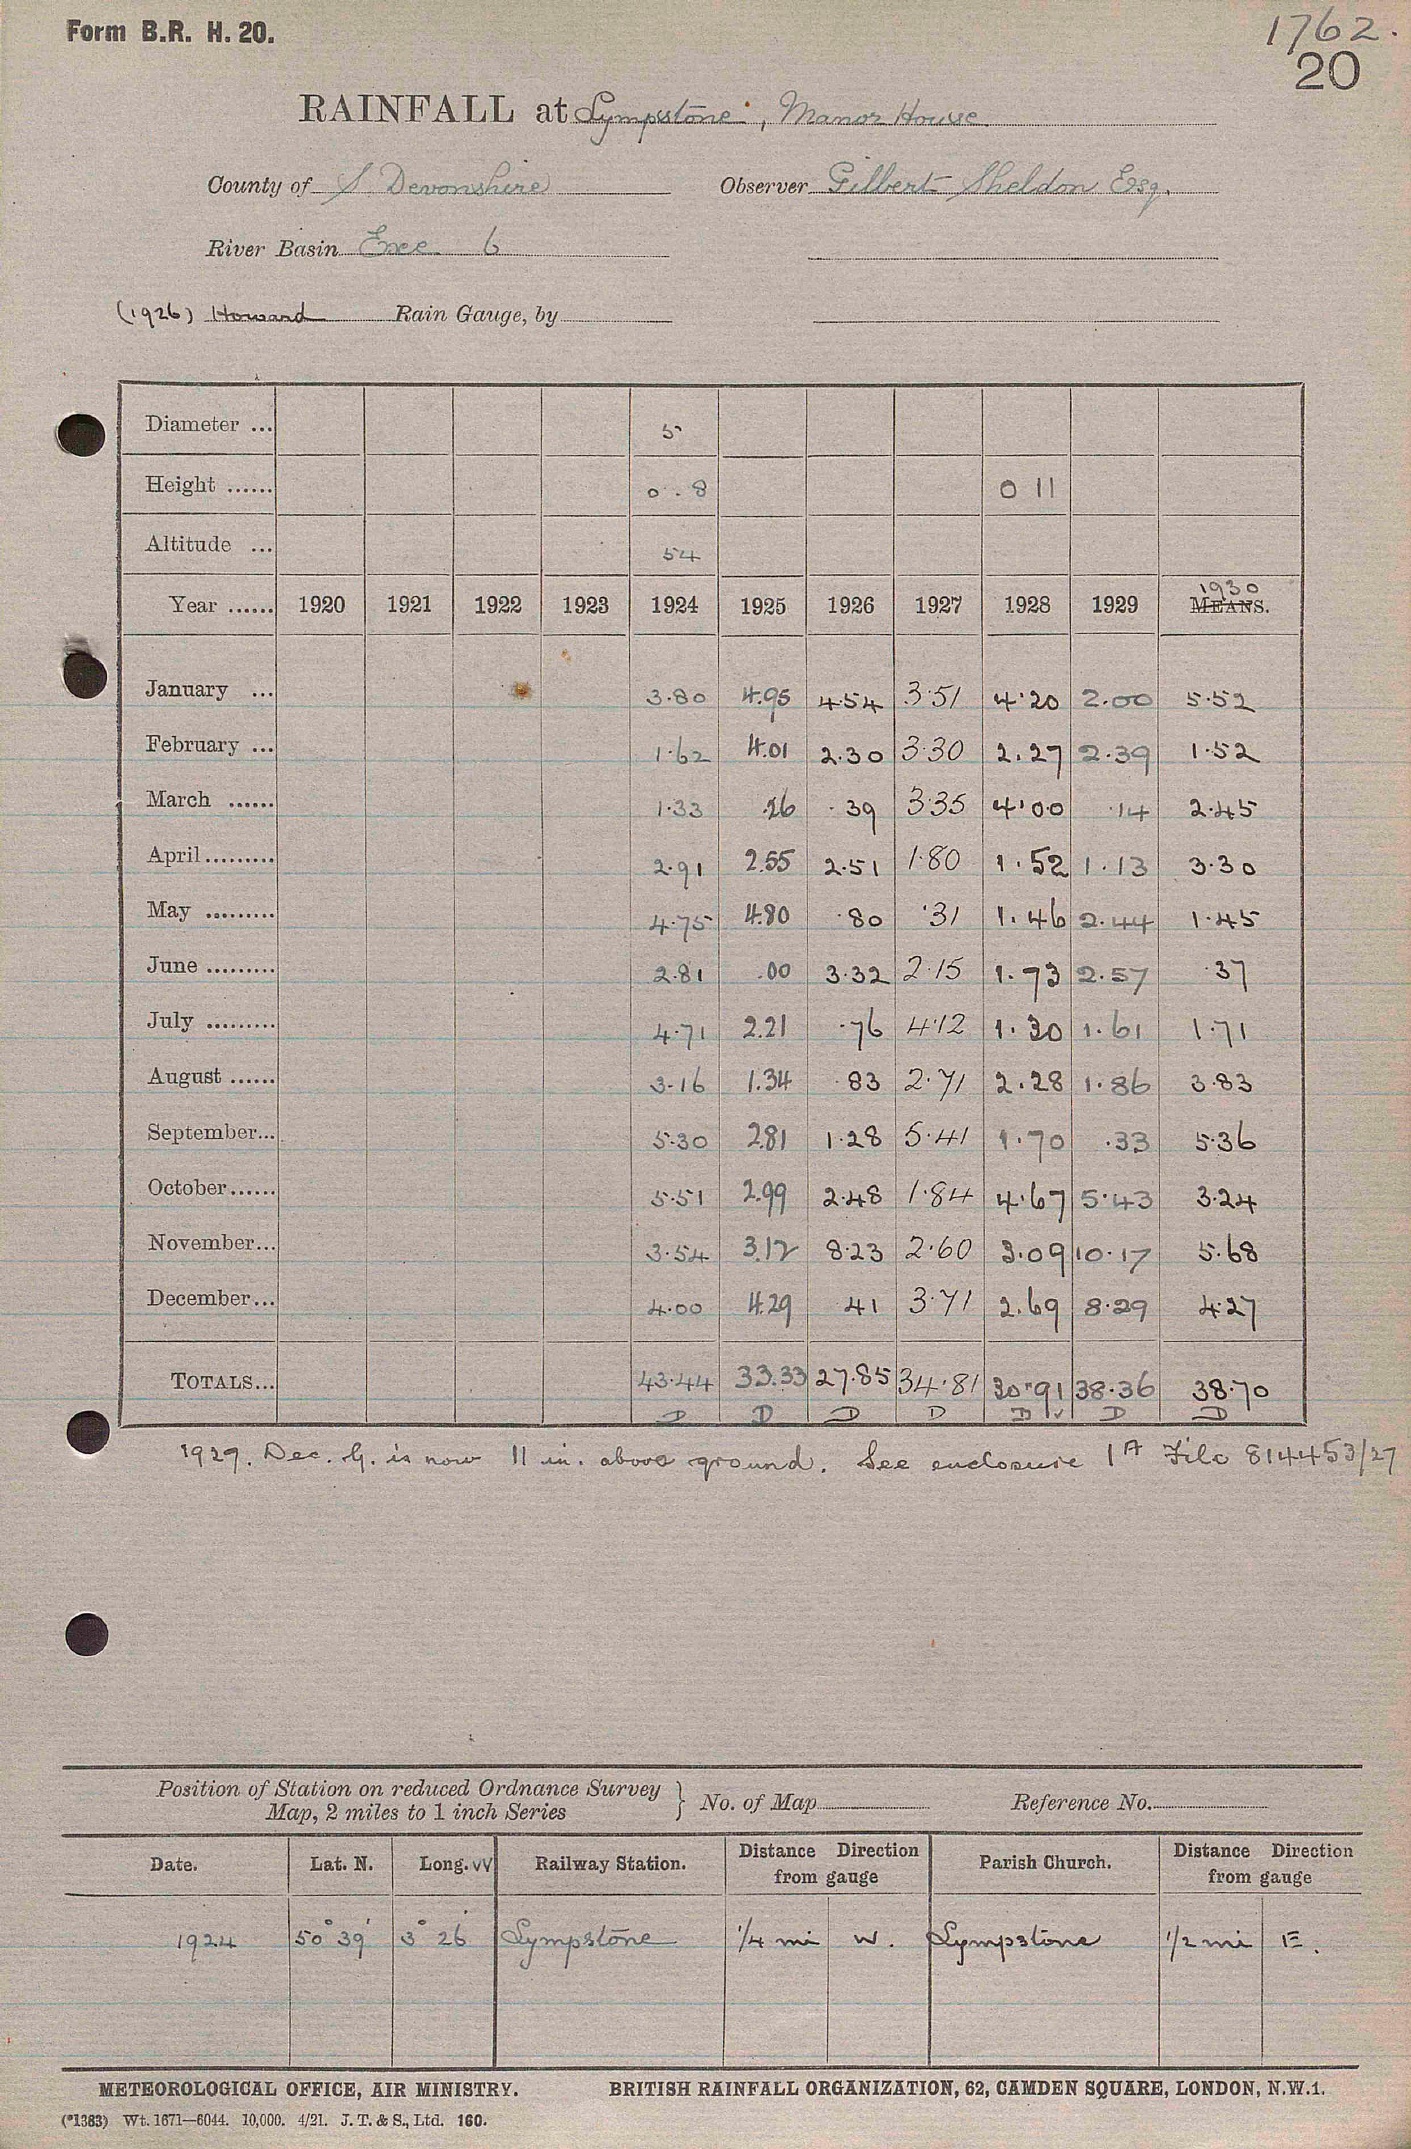 Form B.R. H. 20.
1762.
20
RAINFALL at Lympstone, Manor House
County of S. Devonshire Observer Gilbert Sheldon Esq.
River Basin Exe 6
(1926) Howard Rain Gauge, by
Diameter ... 5
Height ...... 0.8 0 11
Altitude ... 54
1930
Year ...... 1920 1921 1922 1923 1924 1925 1926 1927 1928 1929 MEANS.
January ... 3.80 4.95 4.54 3.51 4.20 2.00 5.52
February ... 1.62 4.01 2.30 3.30 2.27 2.39 1.52
March ...... 1.33 .26 .39 3.35 4.00 .14 2.45
April ......... 2.91 2.55 2.51 1.80 1.52 1.13 3.30
May ......... 4.75 4.80 .80 .31 1.46 2.44 1.45
June ......... 2.81 .00 3.32 2.15 1.73 2.57 .37
July ......... 4.71 2.21 .76 4.12 1.30 1.61 1.71
August ...... 3.16 1.34 .83 2.71 2.28 1.86 3.83
September... 5.30 2.81 1.28 5.41 1.70 .33 5.36
October...... 5.51 2.99 2.48 1.84 4.67 5.43 3.24
November... 3.54 3.12 8.23 2.60 3.09 10.17 5.68
December... 4.00 4.29 .41 3.71 2.69 8.29 4.27
TOTALS... 43.44 33.33 27.85 34.81 30.91 38.36 38.70
D D D D D v D D
1927. Dec. G. is now 11 in. above ground. See enclosure 1A File 814453/27
Position of Station on reduced Ordnance Survey
Map, 2 miles to 1 inch Series } No. of Map Reference No.
Date. Lat. N. Long. W Railway Station. Distance Direction from gauge Parish Church. Distance Direction from gauge
1924 50° 39' 3° 26' Lympstone 1/4 mi W. Lympstone 1/2 mi E.
METEOROLOGICAL OFFICE, AIR MINISTRY. BRITISH RAINFALL ORGANIZATION, 62, CAMDEN SQUARE, LONDON, N.W.1.
(*1383) Wt. 1671—6044. 10,000. 4/21. J. T. & S., Ltd. 160.